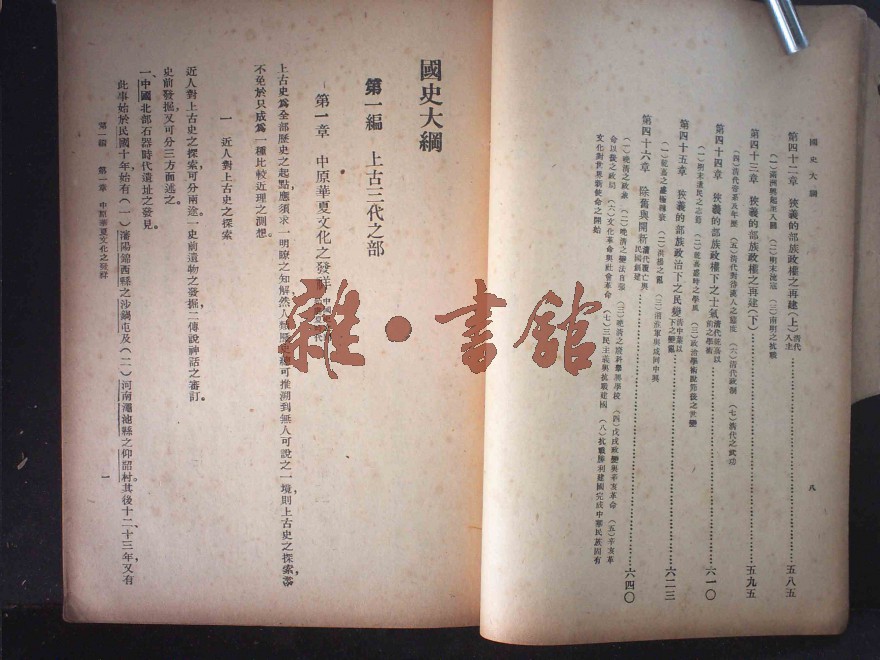 國史大綱
八
第四十二章 狹義的部族政權之再建(上)清代入主……五八五
(一)滿洲興起至入關 (二)明末流寇 (三)南明之抗戰
第四十三章 狹義的部族政權之再建(下)……五九五
(四)清代帝系及年歷 (五)清代對待漢人之態度 (六)清代政制 (七)清代之武功
第四十四章 狹義的部族政權下之士氣清代乾嘉以前之學術……六一〇
(一)明末遺民之志節 (二)乾嘉盛時之學風 (三)政治學術脫節後之世變
第四十五章 狹義的部族政治下之民變清中葉以下之變亂……六二三
(一)乾嘉之盛極轉衰 (二)洪楊之亂 (三)湘淮軍與咸同中興
第四十六章 除舊與開新清代覆亡與民國創建……六四〇
(一)晚清之政象 (二)晚清之變法自強 (三)晚清之廢科舉興學校 (四)戊戌政變與辛亥革命 (五)辛亥革
命以後之政局 (六)文化革命與社會革命 (七)三民主義與抗戰建國 (八)抗戰勝利建國完成中華民族固有
文化對世界新使命之開始
國史大綱
第一編 上古三代之部
第一章 中原華夏文化之發祥
上古史為全部歷史之起點,應須求一明瞭之知解,然人類歷史總可推溯到無人可說之一境,則上古史之探索,終
不免於只成為一種比較近理之測想。
一 近人對上古史之探索
近人對上古史之探索,可分兩途,一史前遺物之發掘,二傳說神話之審訂。
史前發掘,又可分三方面述之。
一、中國北部石器時代遺址之發見。
此事始於民國十年,始有(一)瀋陽錦西縣之沙鍋屯及(二)河南澠池縣之仰韶村。其後十二、十三年,又有
第一編 第一章 中原華夏文化之發祥
一
雜·書館